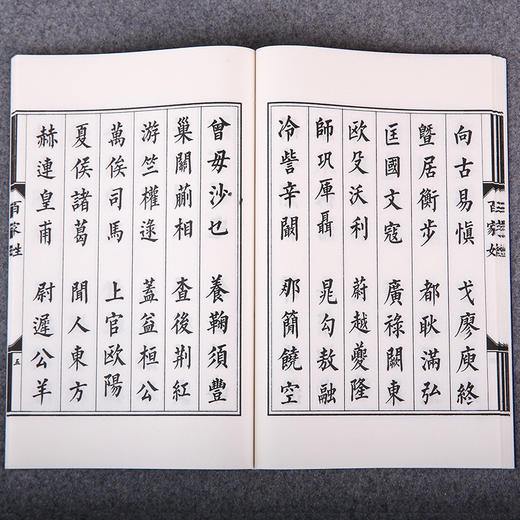 百家姓
向古易慎 戈廖庾終
暨居衡步 都耿滿弘
匡國文寇 廣祿闕東
歐殳沃利 蔚越夔隆
師巩厙聶 晁勾敖融
冷訾辛闞 那簡饒空
曾毋沙乜 養鞠須豐
巢關蒯相 查後荊紅
游竺權逯 蓋益桓公
萬俟司馬 上官歐陽
夏侯諸葛 聞人東方
赫連皇甫 尉遲公羊
百家姓
五